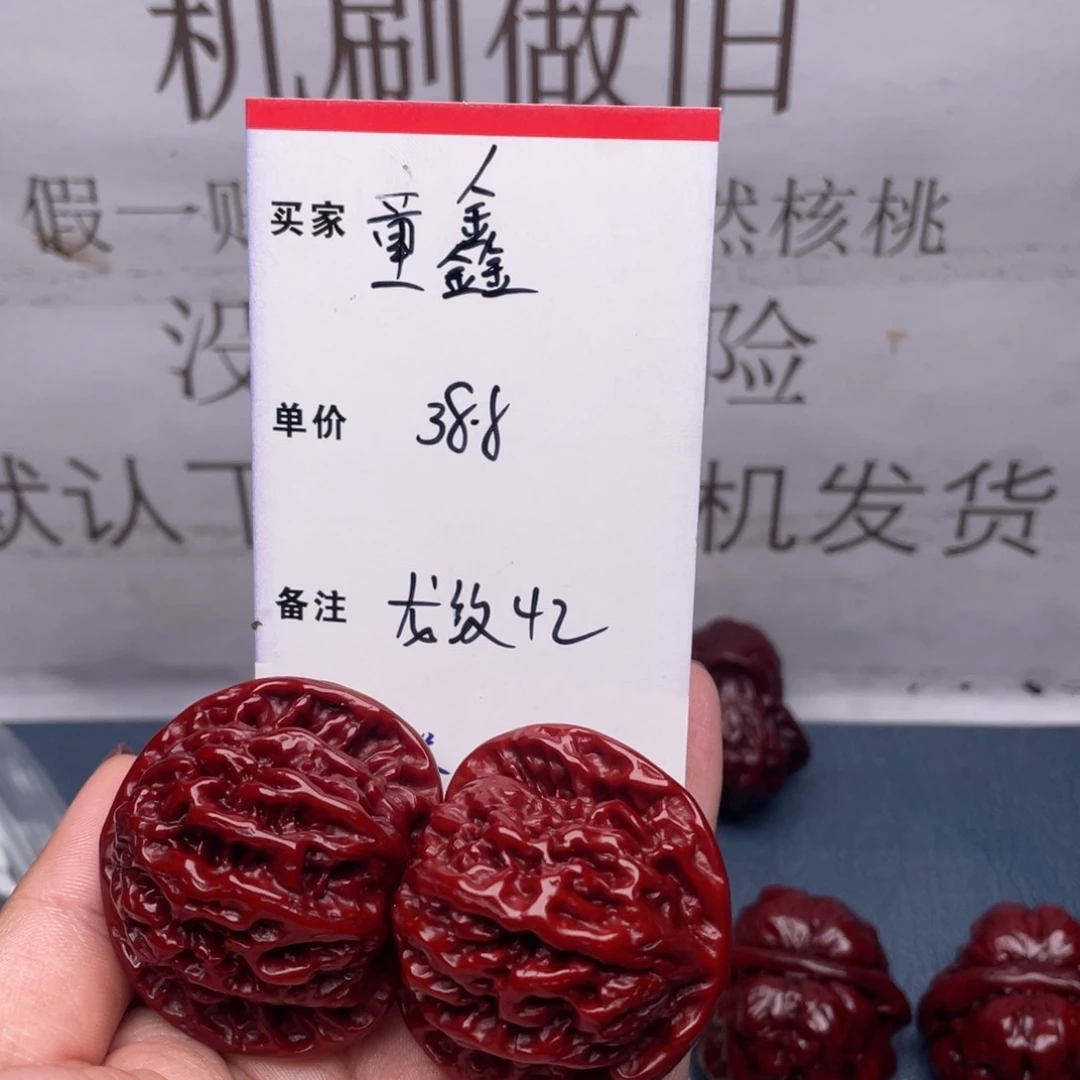 机刷做旧
假一
然核桃
没
险
默认
机发货
买家 董鑫
单价 38.8
备注 龙纹42